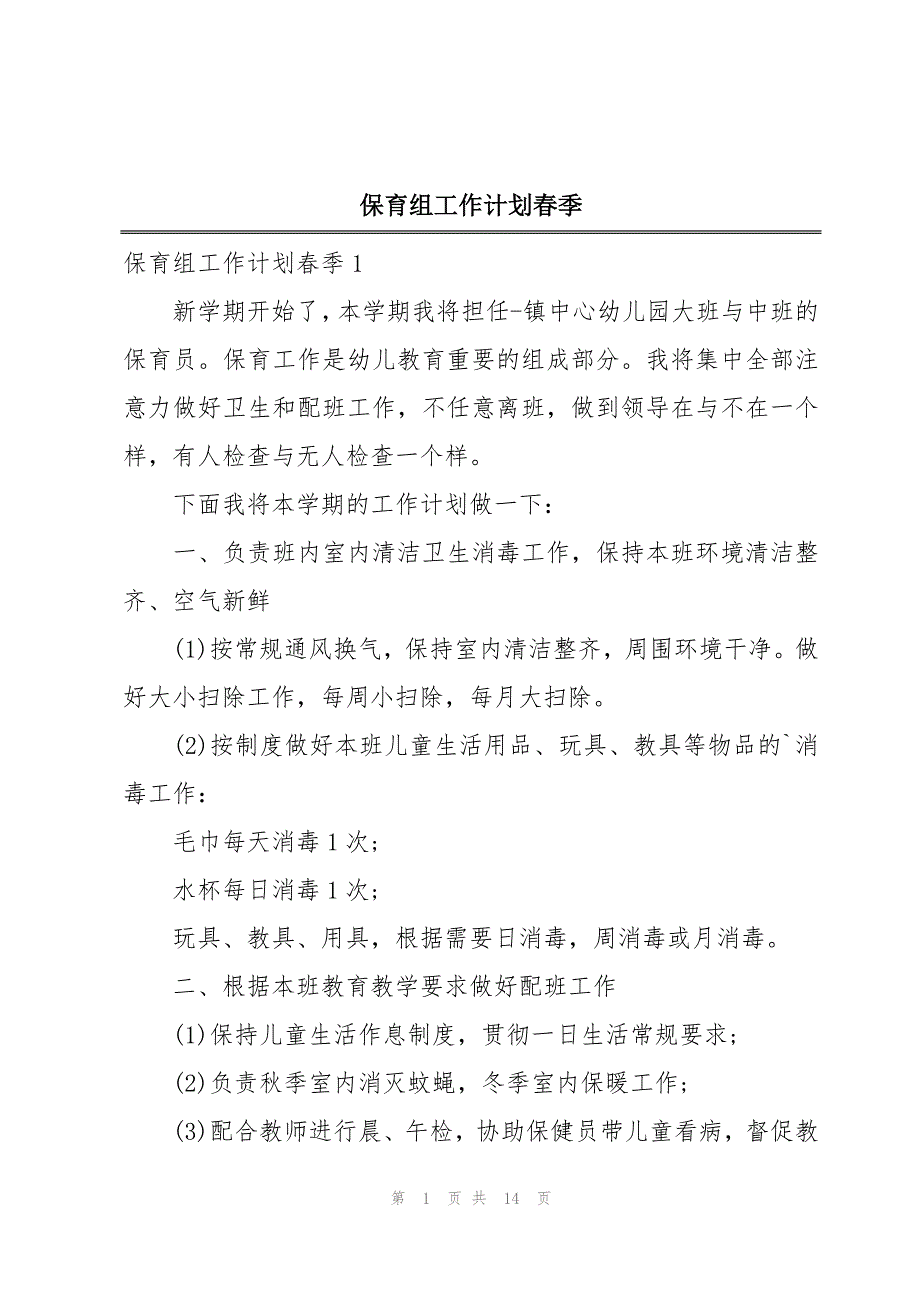 保育组工作计划春季
保育组工作计划春季1
新学期开始了,本学期我将担任-镇中心幼儿园大班与中班的
保育员。保育工作是幼儿教育重要的组成部分。我将集中全部注
意力做好卫生和配班工作，不任意离班，做到领导在与不在一个
样，有人检查与无人检查一个样。
下面我将本学期的工作计划做一下：
一、负责班内室内清洁卫生消毒工作，保持本班环境清洁整
齐、空气新鲜
(1)按常规通风换气，保持室内清洁整齐，周围环境干净。做
好大小扫除工作，每周小扫除，每月大扫除。
(2)按制度做好本班儿童生活用品、玩具、教具等物品的`消
毒工作：
毛巾每天消毒1次;
水杯每日消毒1次;
玩具、教具、用具，根据需要日消毒，周消毒或月消毒。
二、根据本班教育教学要求做好配班工作
(1)保持儿童生活作息制度，贯彻一日生活常规要求;
(2)负责秋季室内消灭蚊蝇，冬季室内保暖工作;
(3)配合教师进行晨、午检，协助保健员带儿童看病，督促教
第 1 页 共 14 页